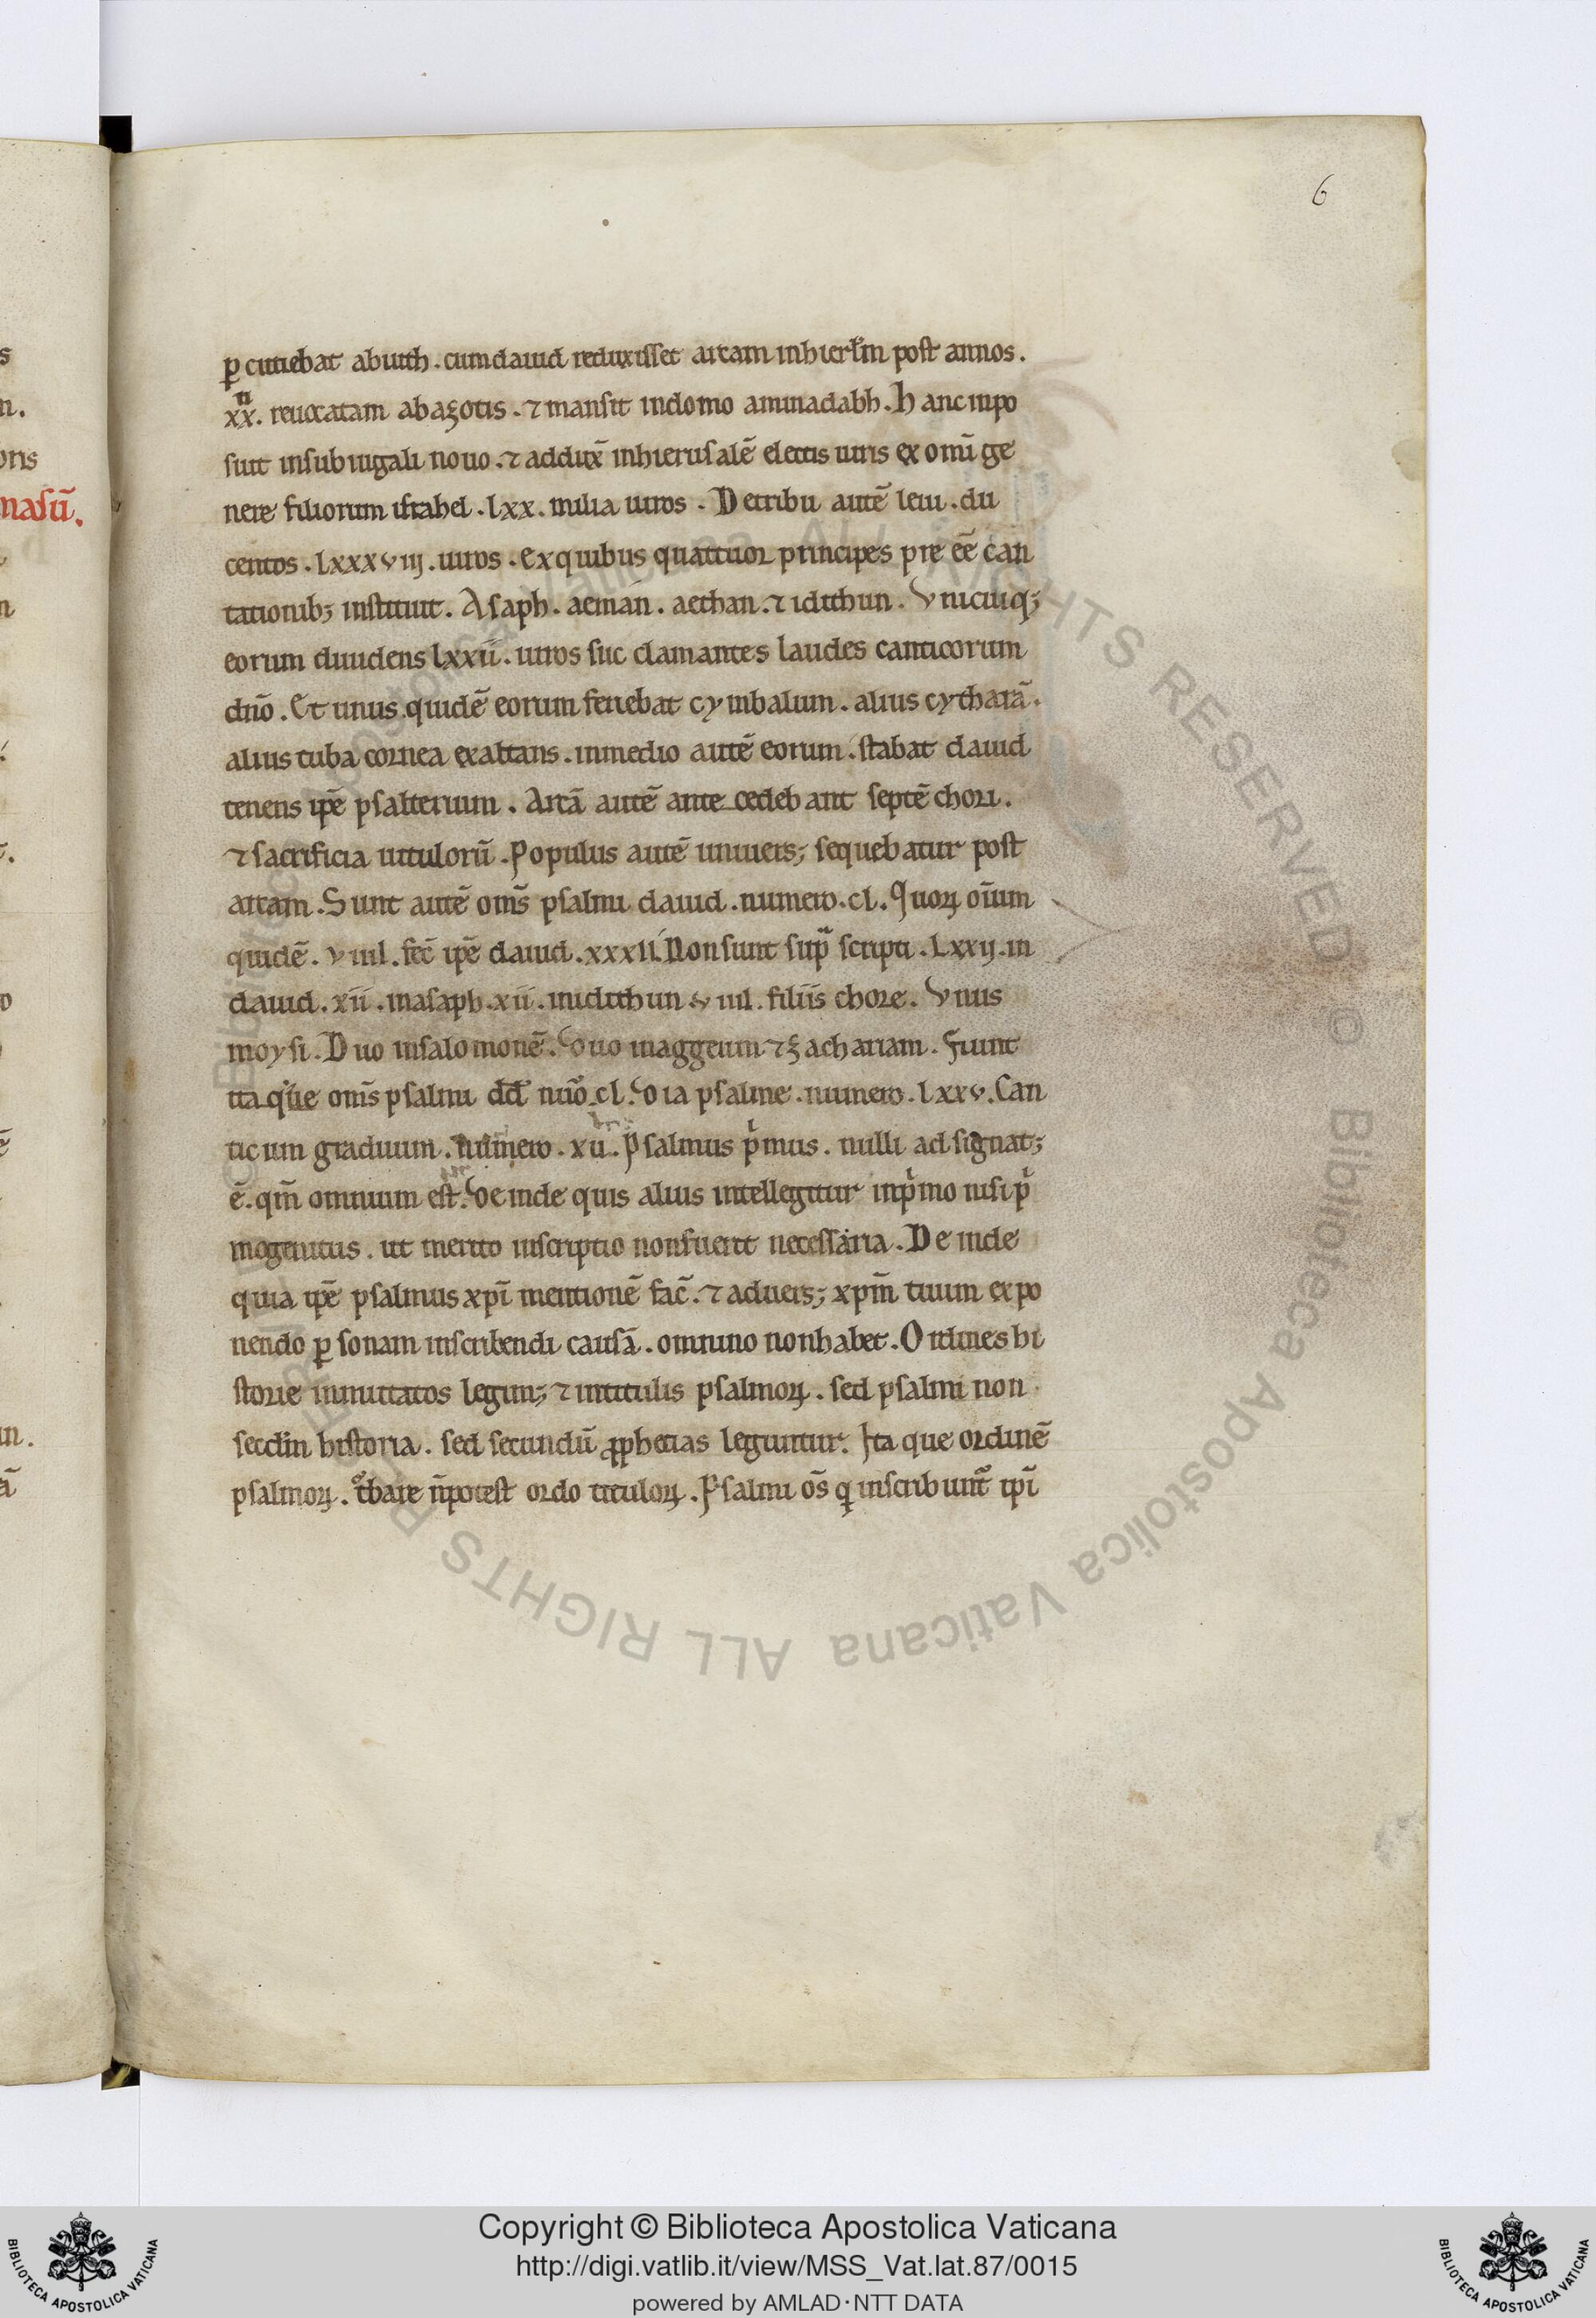 6
ꝑcutiebat abuith . cum dauid reduxisset arcam in hierłm post annos .
xx. reuocatam ab azotis . ⁊ mansit in domo aminadabh . Hanc inpo
suit in subiugali nouo . ⁊ addux̄ in hierusalē electis uiris ex omī ge
nere filiorum israhel . lxx . milia uiros . De tribu autē leui . du
centos . lxxxviij . uiros . ex quibus quattuor principes pre eē can
tationib; instituit . Asaph . aeman . aethan . ⁊ idithun . Vnicuiq;
eorum diuidens lxxii . uiros suc clamantes laudes canticorum
dn̄o . Et unus quidē eorum feriebat cymbalum . alius cytharā .
alius tuba cornea exaltans . in medio autē eorum . stabat dauid
tenens ip̄e psalterium . Arcā autē antecedebant septē chori .
⁊ sacrificia uitulorū . Populus autē uniuers; sequebatur post
arcam . Sunt autē om̄s psalmi dauid . numero . cl . Quoꝝ oīum
quidē . viiii . fec̄ ip̄e dauid . xxxii . Non sunt sup̄ scripti . Lxxij . in
dauid . xii . in asaph . xii . in idithun . viiii . filiis chore . Vnus
moysi . Duo in salomonē . Duo in aggeum ⁊ zachariam . Fiunt
itaque om̄s psalmi dd̄ nūo . cl . Dia psalme . numero . lxxv . Can
ticum graduum . numero . xu . Psalmus pͥmus . nulli adsignat;
ē . qm̄ omnium est . Deinde quis alius intellegitur in pͥmo nisi pͥ
mogenitus . ut merito inscriptio non fuerit necessaria . Deinde
quia ip̄e psalmus xp̄i mentionē fac̄ . ⁊ aduers; xp̄m tuum expo
nendo ꝑsonam inscribendi causā . omnino non habet . Ordines hi
storie inmutatos legim; ⁊ in titulis psalmoꝝ . sed psalmi non
secdm̄ historia . sed secundū ꝓphetias leguntur . Itaque ordinē
psalmoꝝ . tͦbare n̄ potest ordo tituloꝝ . Psalmi om̄s qͥ inscribunt̄ ip̄i
Copyright © Biblioteca Apostolica Vaticana
http://digi.vatlib.it/view/MSS_Vat.lat.87/0015
powered by AMLAD·NTT DATA